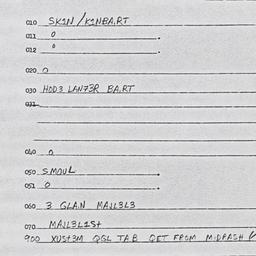 010 SK1N/K1NBA.RT
011 0
012 0
020 0
030 HOD3 LAN73R BA.RT
031
040 0
050 SMOUL
051 0
060 3 GLA.N MAJL3L3
070 MAJL3L1St
900 XUST3M QGL TAB QET FROM MIDRASH